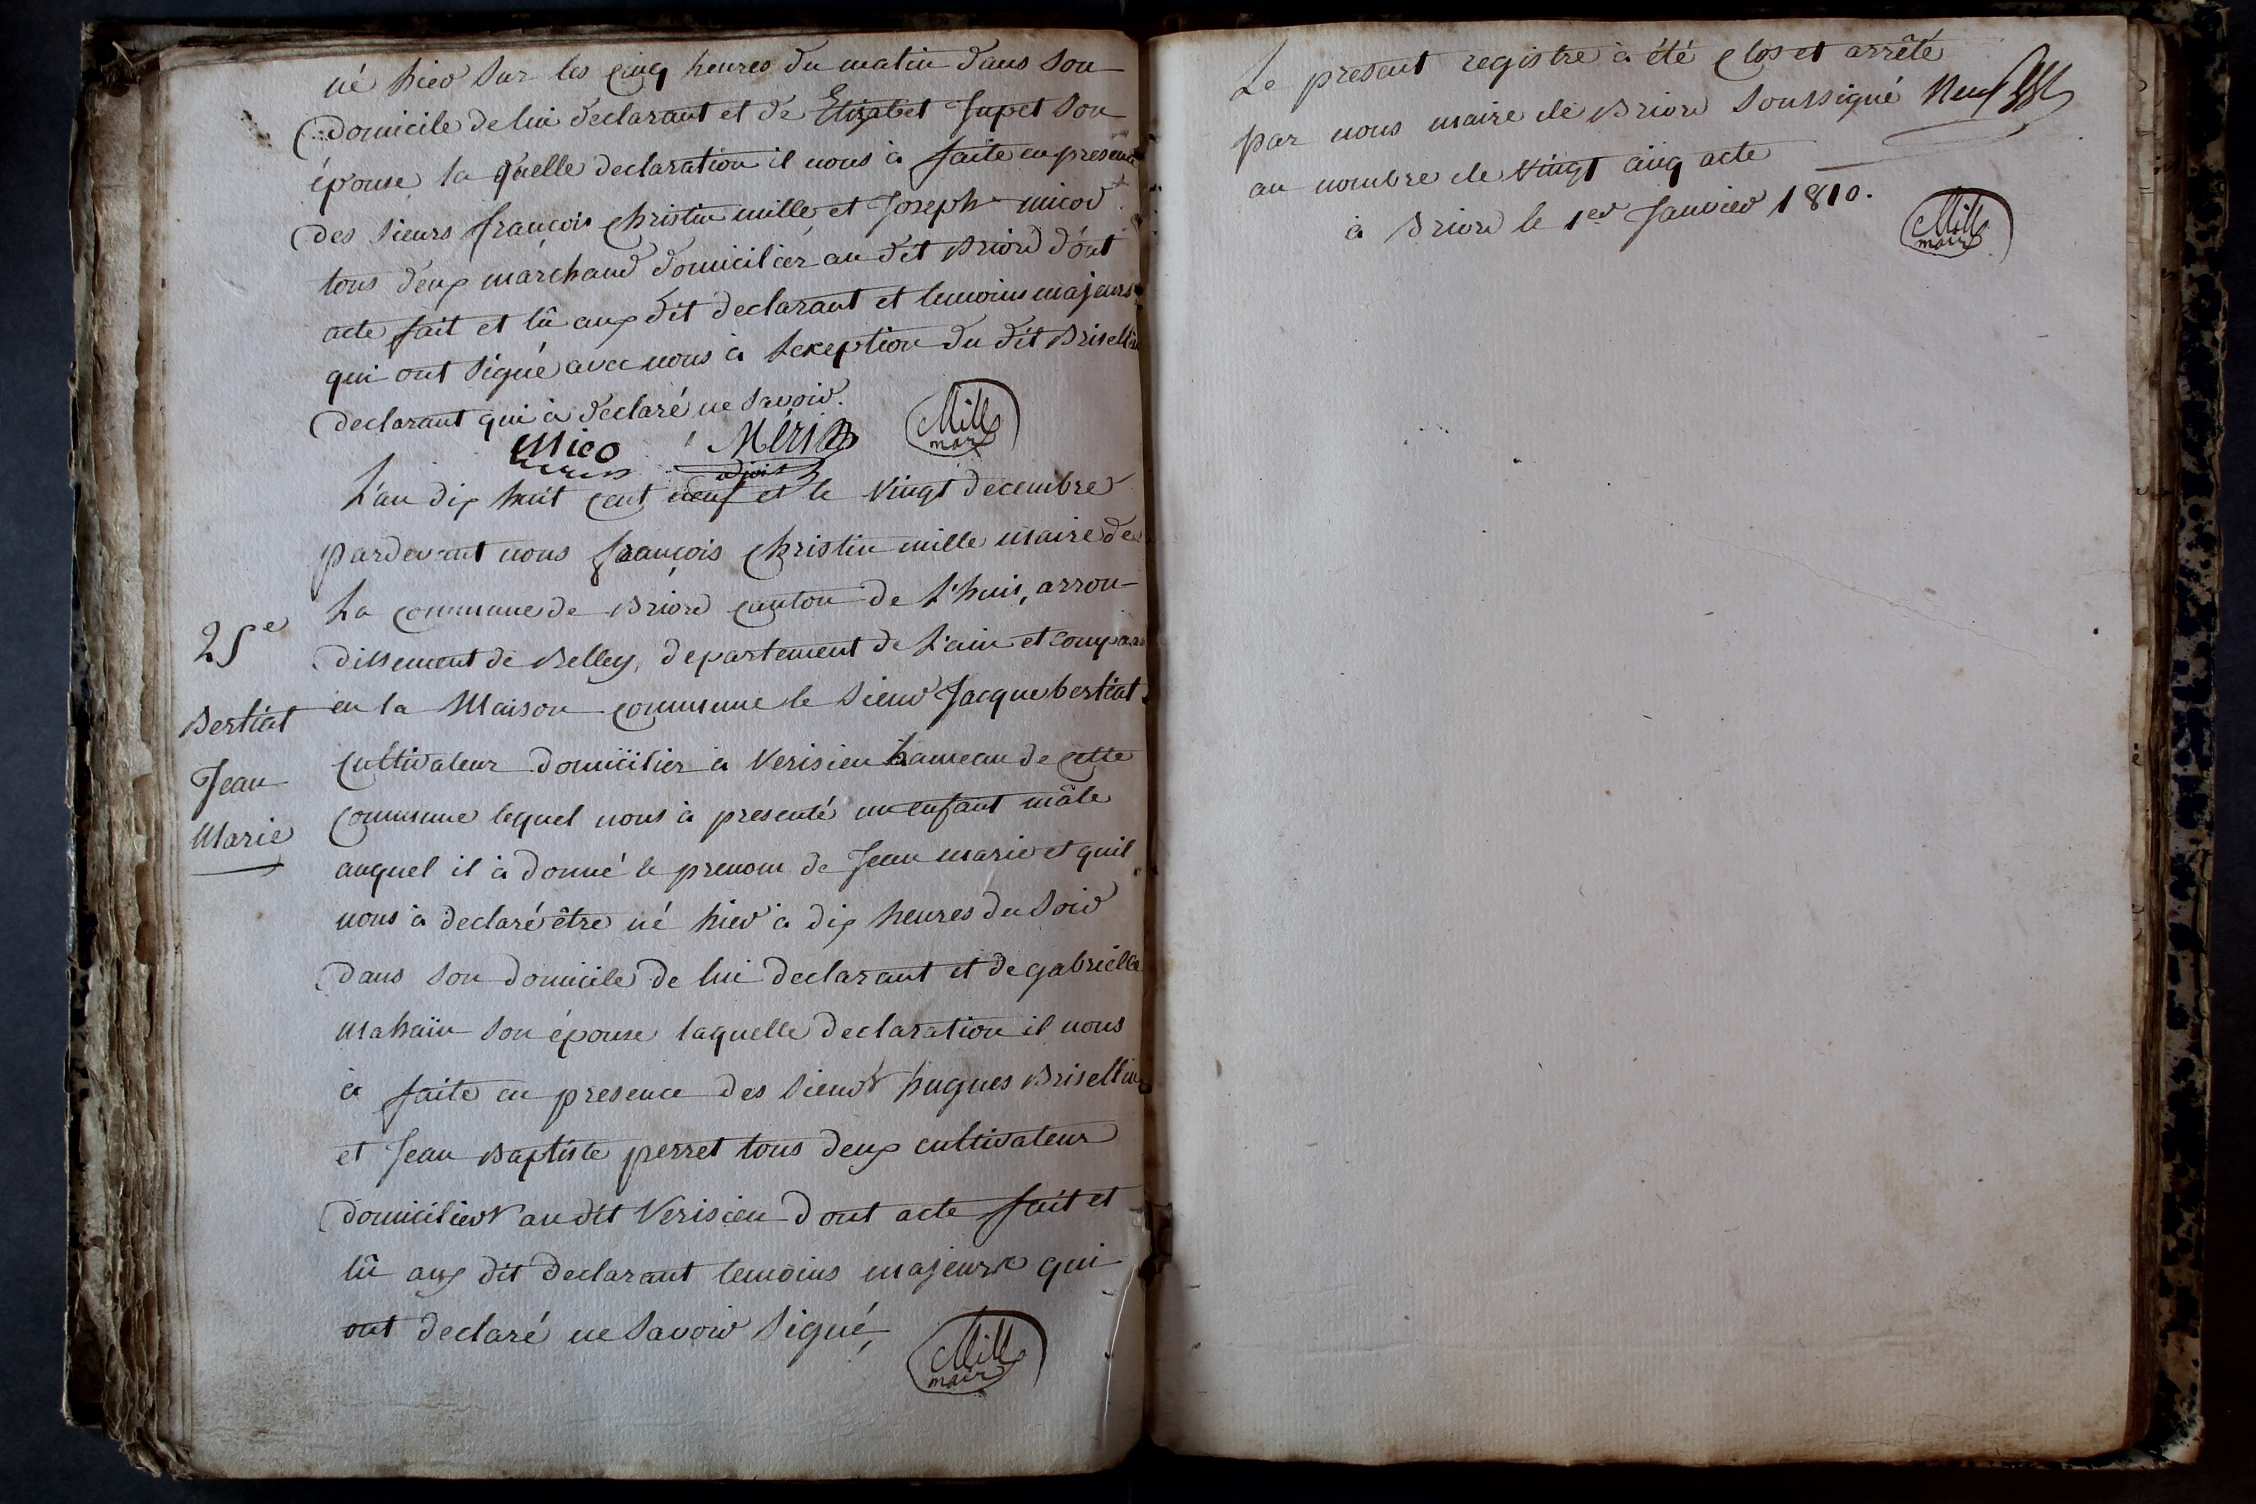 né hier sur les cinq heures du matin dans son
domicile de lui declarant et de Elizabet Jupet son
épouse la quelle declaration il nous à faite en presence
des sieurs françois christin mille et Joseph micod
tous deux marchand domicilier au dit Briord dont
acte fait et lû aux dit declarant et temoins majeurs
qui ont signé avec nous à lexeption du dit Brisellin
declarant qui à declaré ne savoir.
Mico
adjoint
Mille
maire
L'an dix huit cent neuf et le vingt decembre
pardevant nous françois christin mille maire de
La commune de Briord canton de L'huis, arron-
dissement de Belley, departement de L'ain et comparu
en la Maison commune le sieur Jacque bertiat
cultivateur domicilier à Verisieu hameau de cette
commune lequel nous à presenté un enfant mâle
auquel il à donné le prenom de Jean marie et quil
nous à declaré être né hier à dix heures du soir
dans son domicile de lui declarant et de gabrielle
mahaïn son épouse laquelle declaration il nous
à faite en presence des sieurs hugues Brisellin
et Jean Baptiste perret tous deux cultivateur
domiciliers au dit Verisieu dont acte fait et
lû aux dit declarant temoins majeurs qui
ont declaré ne savoir signé,
Mille
maire
25e
Bertiat
Jean
Marie
Le present registre à été clos et arrêté
par nous maire de Briord soussigné
au nombre de vingt cinq acte
à Briord le 1er Janvier 1810.
Mille
maire